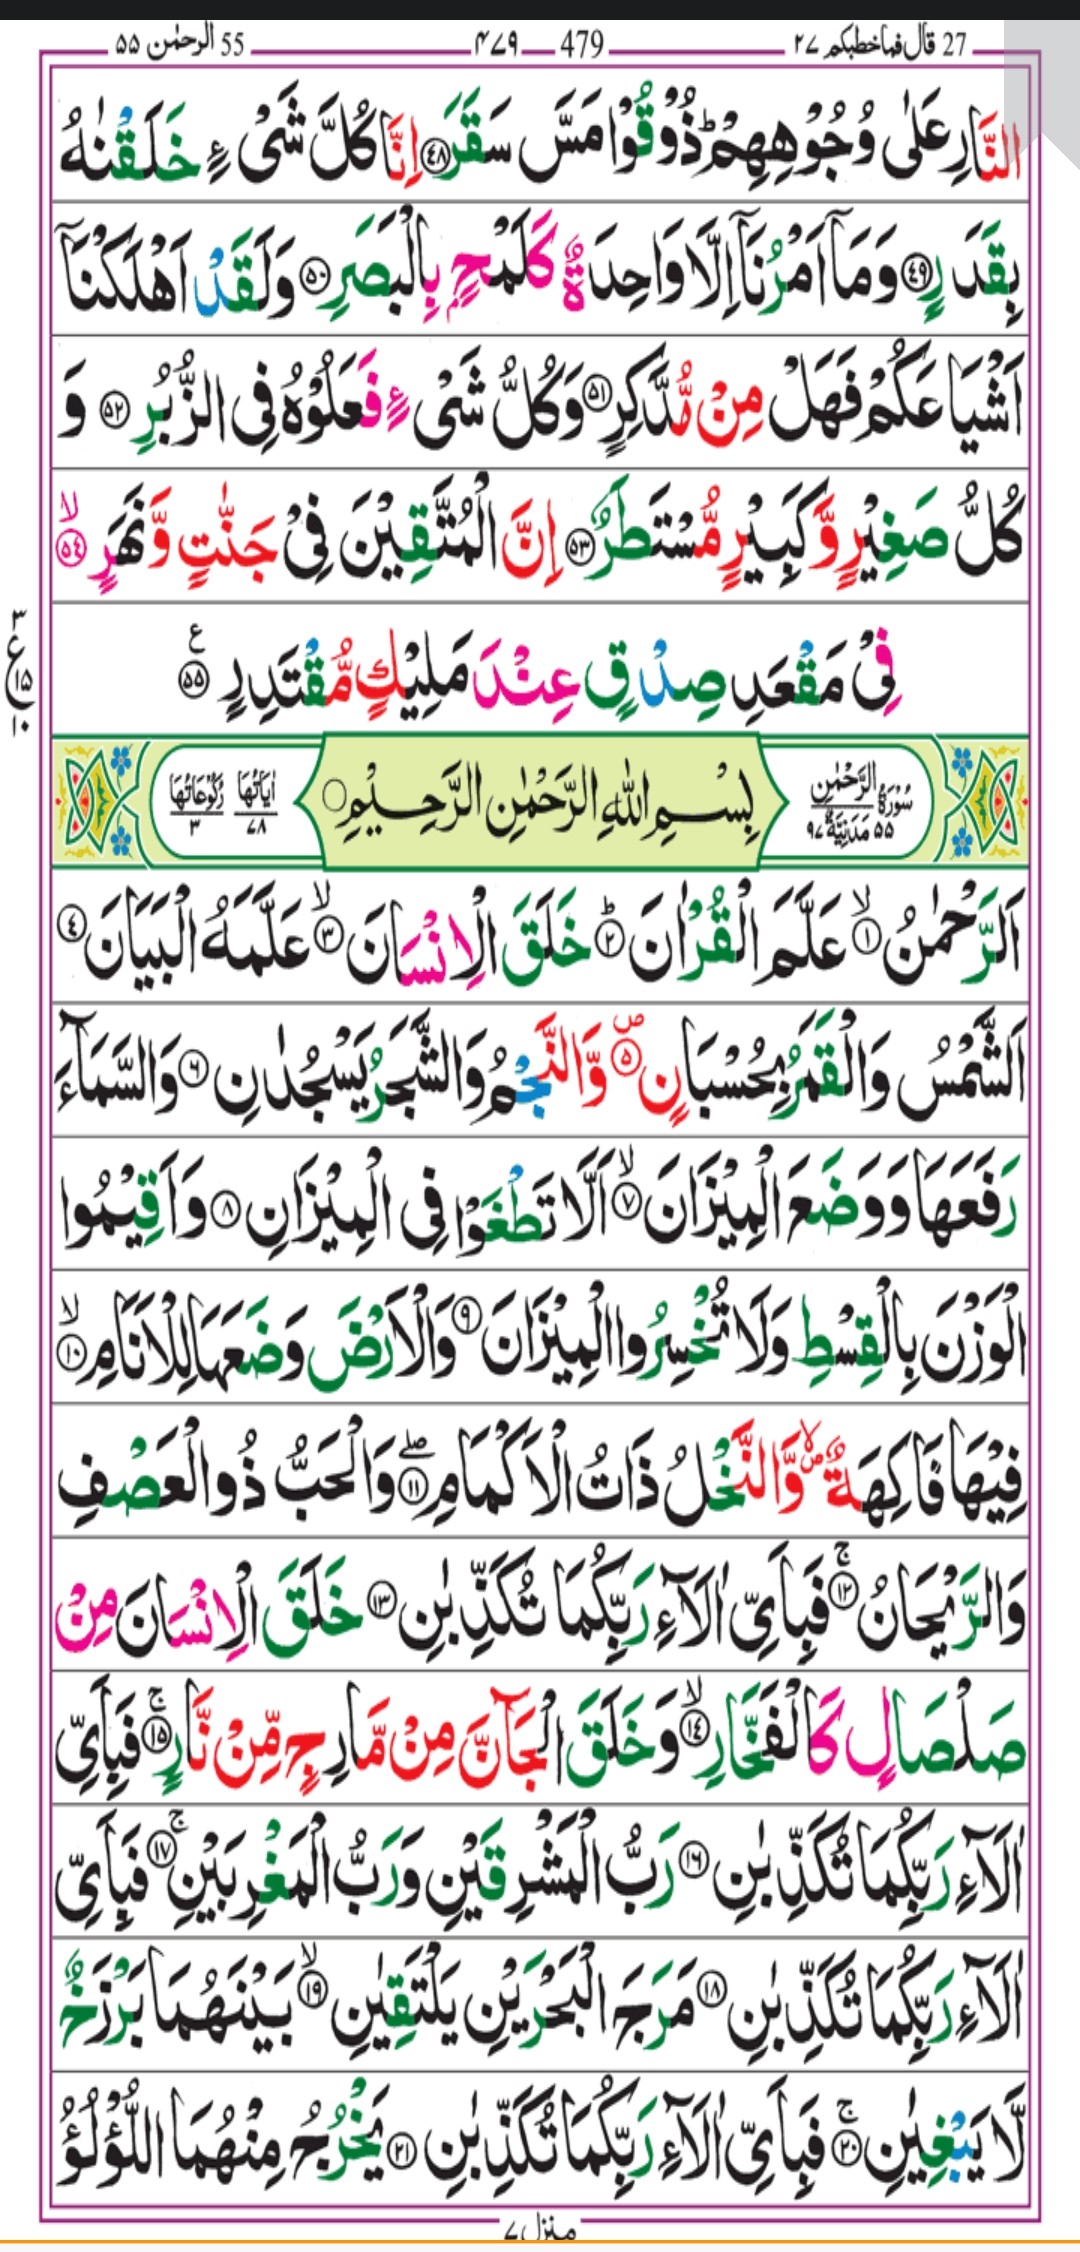 27 قال فما خطبكم ٢٧ 479 ۴۷۹ 55 الرحمٰن ۵۵
النَّارِ عَلٰى وُجُوْهِهِمْ ؕ ذُوْقُوْا مَسَّ سَقَرَ ﴿۴۸﴾ اِنَّا كُلَّ شَىْءٍ خَلَقْنٰهُ
بِقَدَرٍ ﴿۴۹﴾ وَمَاۤ اَمْرُنَاۤ اِلَّا وَاحِدَةٌ كَلَمْحٍۭ بِالْبَصَرِ ﴿۵۰﴾ وَلَقَدْ اَهْلَكْنَاۤ
اَشْيَاعَكُمْ فَهَلْ مِنْ مُّدَّكِرٍ ﴿۵۱﴾ وَكُلُّ شَىْءٍ فَعَلُوْهُ فِى الزُّبُرِ ﴿۵۲﴾ وَ
كُلُّ صَغِيْرٍ وَّكَبِيْرٍ مُّسْتَطَرٌ ﴿۵۳﴾ اِنَّ الْمُتَّقِيْنَ فِىْ جَنّٰتٍ وَّنَهَرٍ ۙ ﴿۵۴﴾
فِىْ مَقْعَدِ صِدْقٍ عِنْدَ مَلِيْكٍ مُّقْتَدِرٍ ﴿۵۵﴾ ع
۳ ع ۱۵ ۱۰
سُوْرَةُ الرَّحْمٰنِ ۵۵ مَدَنِيَّةٌ ۹۷ بِسْمِ اللهِ الرَّحْمٰنِ الرَّحِيْمِ اٰيَاتُهَا ۷۸ رُكُوْعَاتُهَا ۳
اَلرَّحْمٰنُ ۙ ﴿۱﴾ عَلَّمَ الْقُرْاٰنَ ؕ ﴿۲﴾ خَلَقَ الْاِنْسَانَ ۙ ﴿۳﴾ عَلَّمَهُ الْبَيَانَ ﴿۴﴾
اَلشَّمْسُ وَالْقَمَرُ بِحُسْبَانٍ ۪ ﴿۵﴾ وَّالنَّجْمُ وَالشَّجَرُ يَسْجُدٰنِ ﴿۶﴾ وَالسَّمَآءَ
رَفَعَهَا وَوَضَعَ الْمِيْزَانَ ۙ ﴿۷﴾ اَلَّا تَطْغَوْا فِى الْمِيْزَانِ ﴿۸﴾ وَاَقِيْمُوا
الْوَزْنَ بِالْقِسْطِ وَلَا تُخْسِرُوا الْمِيْزَانَ ﴿۹﴾ وَالْاَرْضَ وَضَعَهَا لِلْاَنَامِ ۙ ﴿۱۰﴾
فِيْهَا فَاكِهَةٌ ۪ۙ وَّالنَّخْلُ ذَاتُ الْاَكْمَامِ ۖ ﴿۱۱﴾ وَالْحَبُّ ذُو الْعَصْفِ
وَالرَّيْحَانُ ۚ ﴿۱۲﴾ فَبِاَىِّ اٰلَآءِ رَبِّكُمَا تُكَذِّبٰنِ ﴿۱۳﴾ خَلَقَ الْاِنْسَانَ مِنْ
صَلْصَالٍ كَالْفَخَّارِ ۙ ﴿۱۴﴾ وَخَلَقَ الْجَآنَّ مِنْ مَّارِجٍ مِّنْ نَّارٍ ۚ ﴿۱۵﴾ فَبِاَىِّ
اٰلَآءِ رَبِّكُمَا تُكَذِّبٰنِ ﴿۱۶﴾ رَبُّ الْمَشْرِقَيْنِ وَرَبُّ الْمَغْرِبَيْنِ ۚ ﴿۱۷﴾ فَبِاَىِّ
اٰلَآءِ رَبِّكُمَا تُكَذِّبٰنِ ﴿۱۸﴾ مَرَجَ الْبَحْرَيْنِ يَلْتَقِيٰنِ ۙ ﴿۱۹﴾ بَيْنَهُمَا بَرْزَخٌ
لَّا يَبْغِيٰنِ ۚ ﴿۲۰﴾ فَبِاَىِّ اٰلَآءِ رَبِّكُمَا تُكَذِّبٰنِ ﴿۲۱﴾ يَخْرُجُ مِنْهُمَا اللُّؤْلُؤُ
منزل ۷